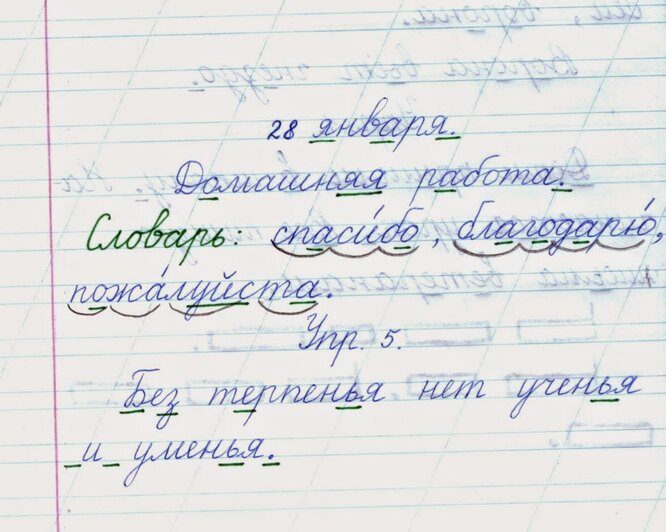 28 января.
Домашняя работа.
Словарь: спаси́бо, благодарю́,
пожа́луйста.
Упр. 5.
Без терпенья нет ученья
и уменья.